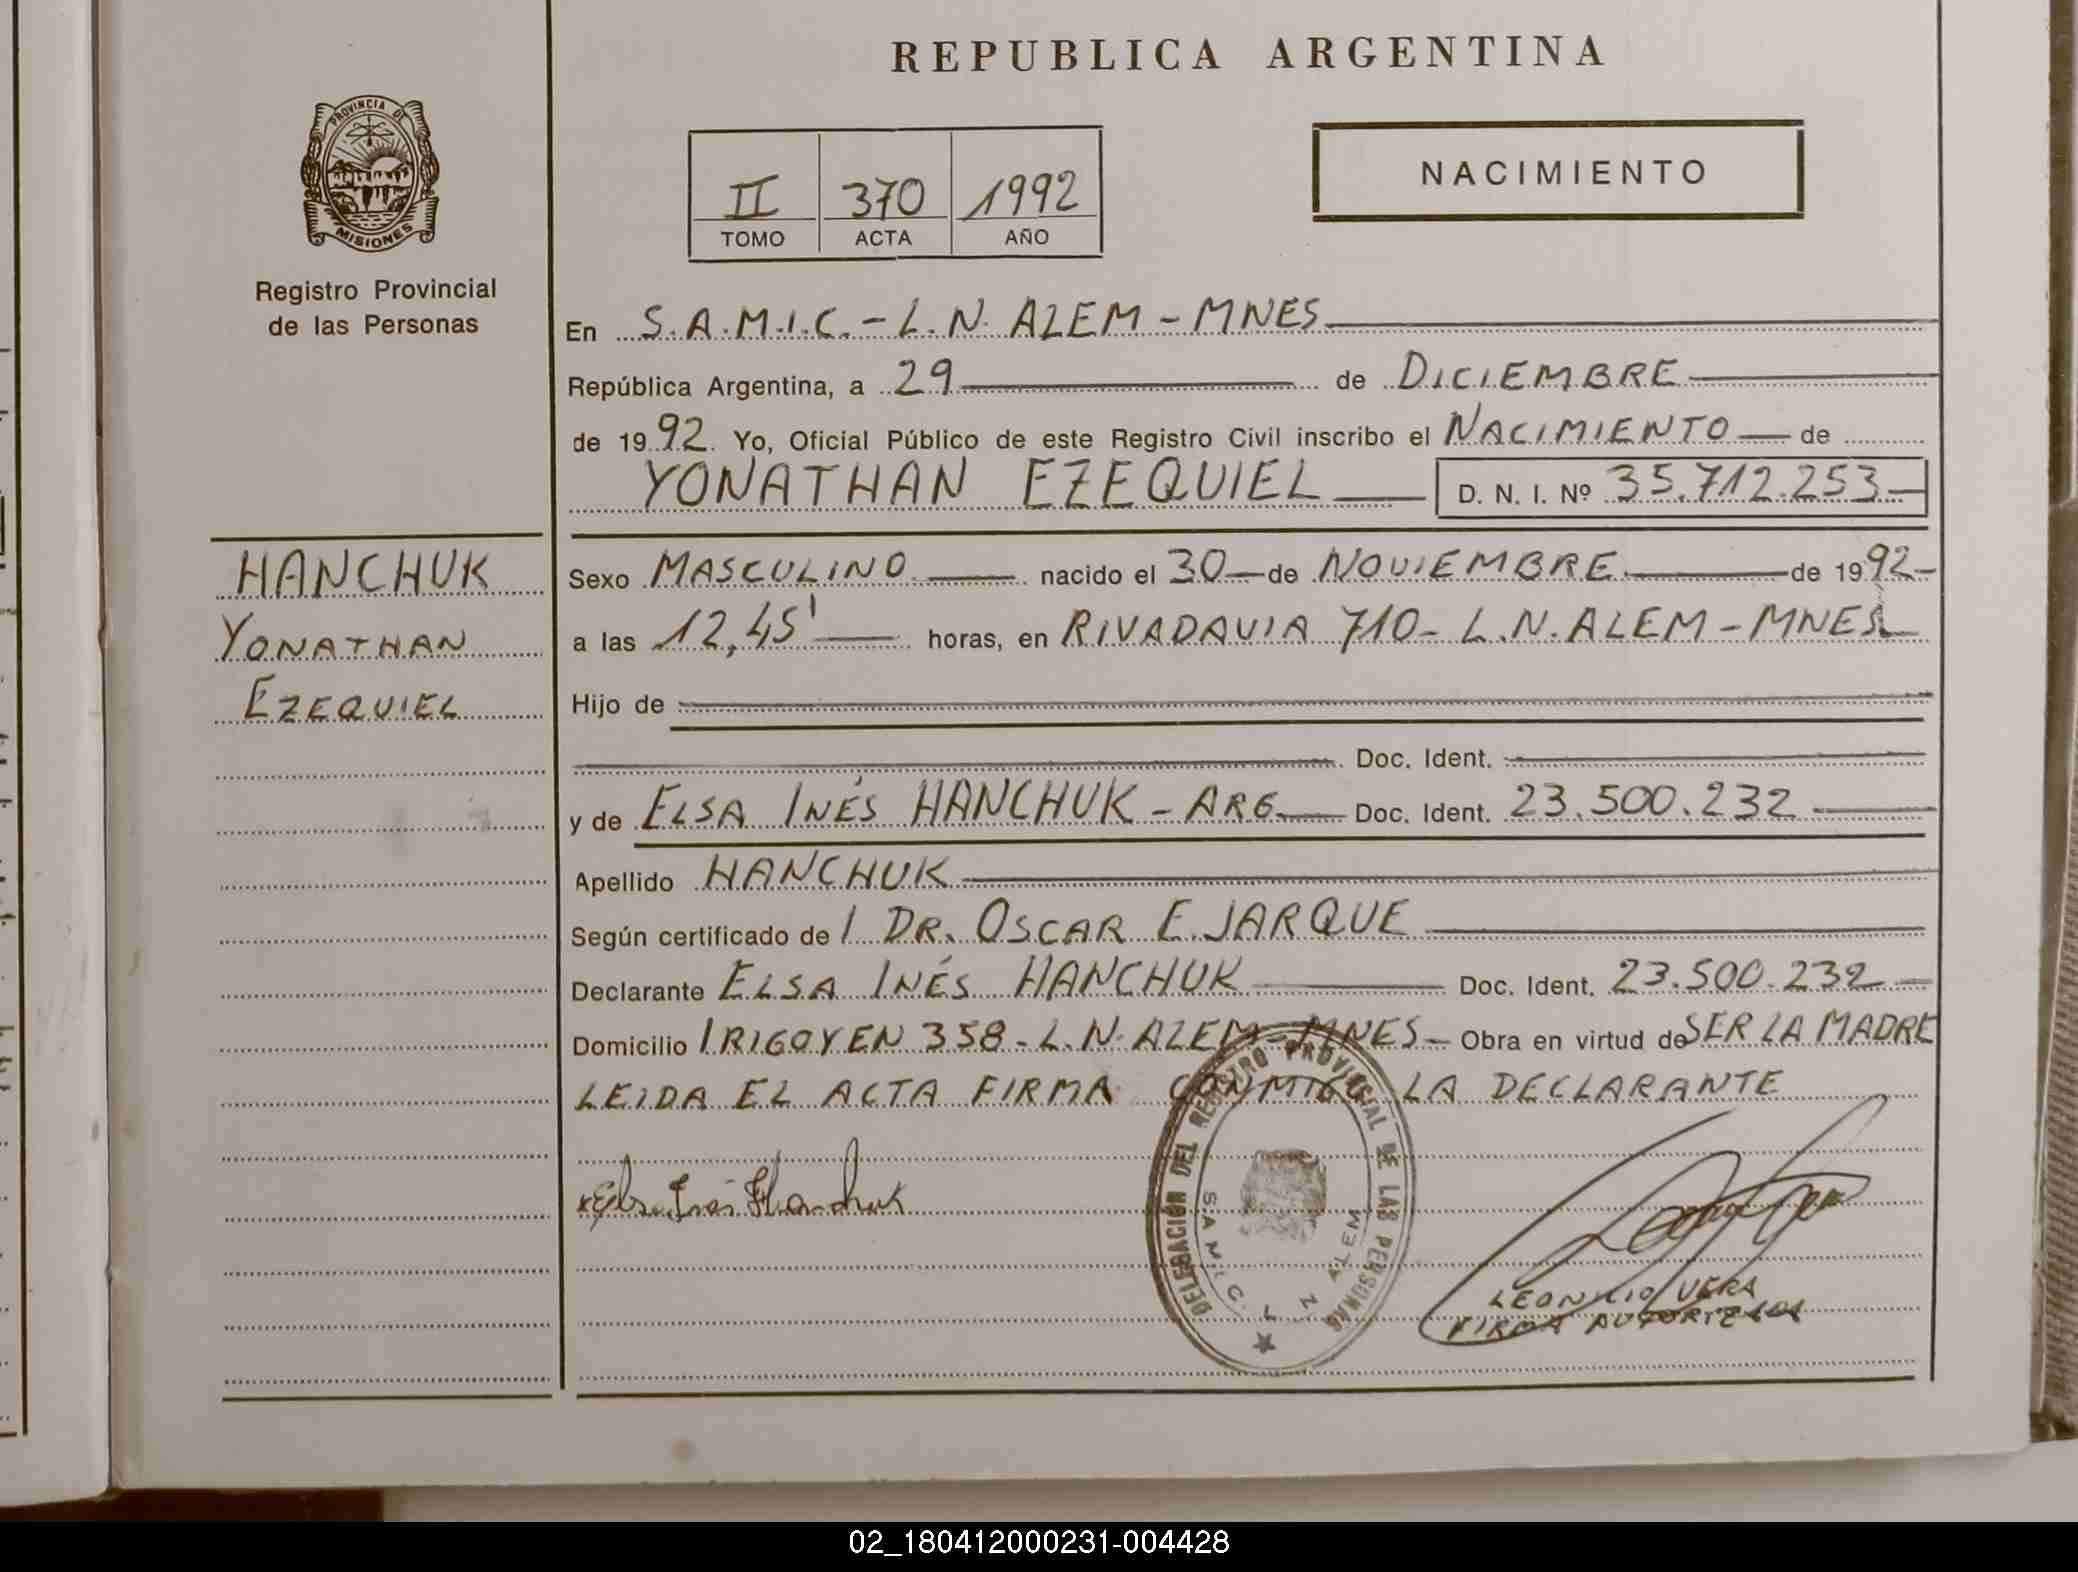 REPUBLICA ARGENTINA
PROVINCIA DE
MISIONES
Registro Provincial
de las Personas
II 370 1992
TOMO ACTA AÑO
NACIMIENTO
En S.A.M.I.C. - L.N. ALEM - MNES
República Argentina, a 29 de DICIEMBRE
de 1992. Yo, Oficial Público de este Registro Civil inscribo el NACIMIENTO de
YONATHAN EZEQUIEL D. N. I. Nº 35.712.253
HANCHUK
YONATHAN
EZEQUIEL
Sexo MASCULINO nacido el 30 de NOVIEMBRE de 1992
a las 12,45' horas, en RIVADAVIA 710 - L.N. ALEM - MNES
Hijo de
Doc. Ident.
y de ELSA INÉS HANCHUK - ARG. Doc. Ident. 23.500.232
Apellido HANCHUK
Según certificado de / DR. OSCAR E. JARQUE
Declarante ELSA INÉS HANCHUK Doc. Ident. 23.500.232
Domicilio IRIGOYEN 358 - L.N. ALEM - MNES - Obra en virtud de SER LA MADRE
LEIDA EL ACTA FIRMA CONMIGO LA DECLARANTE
Elsa Inés Hanchuk
DELEGACIÓN DEL REGISTRO PROVINCIAL DE LAS PERSONAS
S.A.M.I.C. L. N. ALEM
LEONICIO VERA
FIRMA AUTORIZADA
02_180412000231-004428